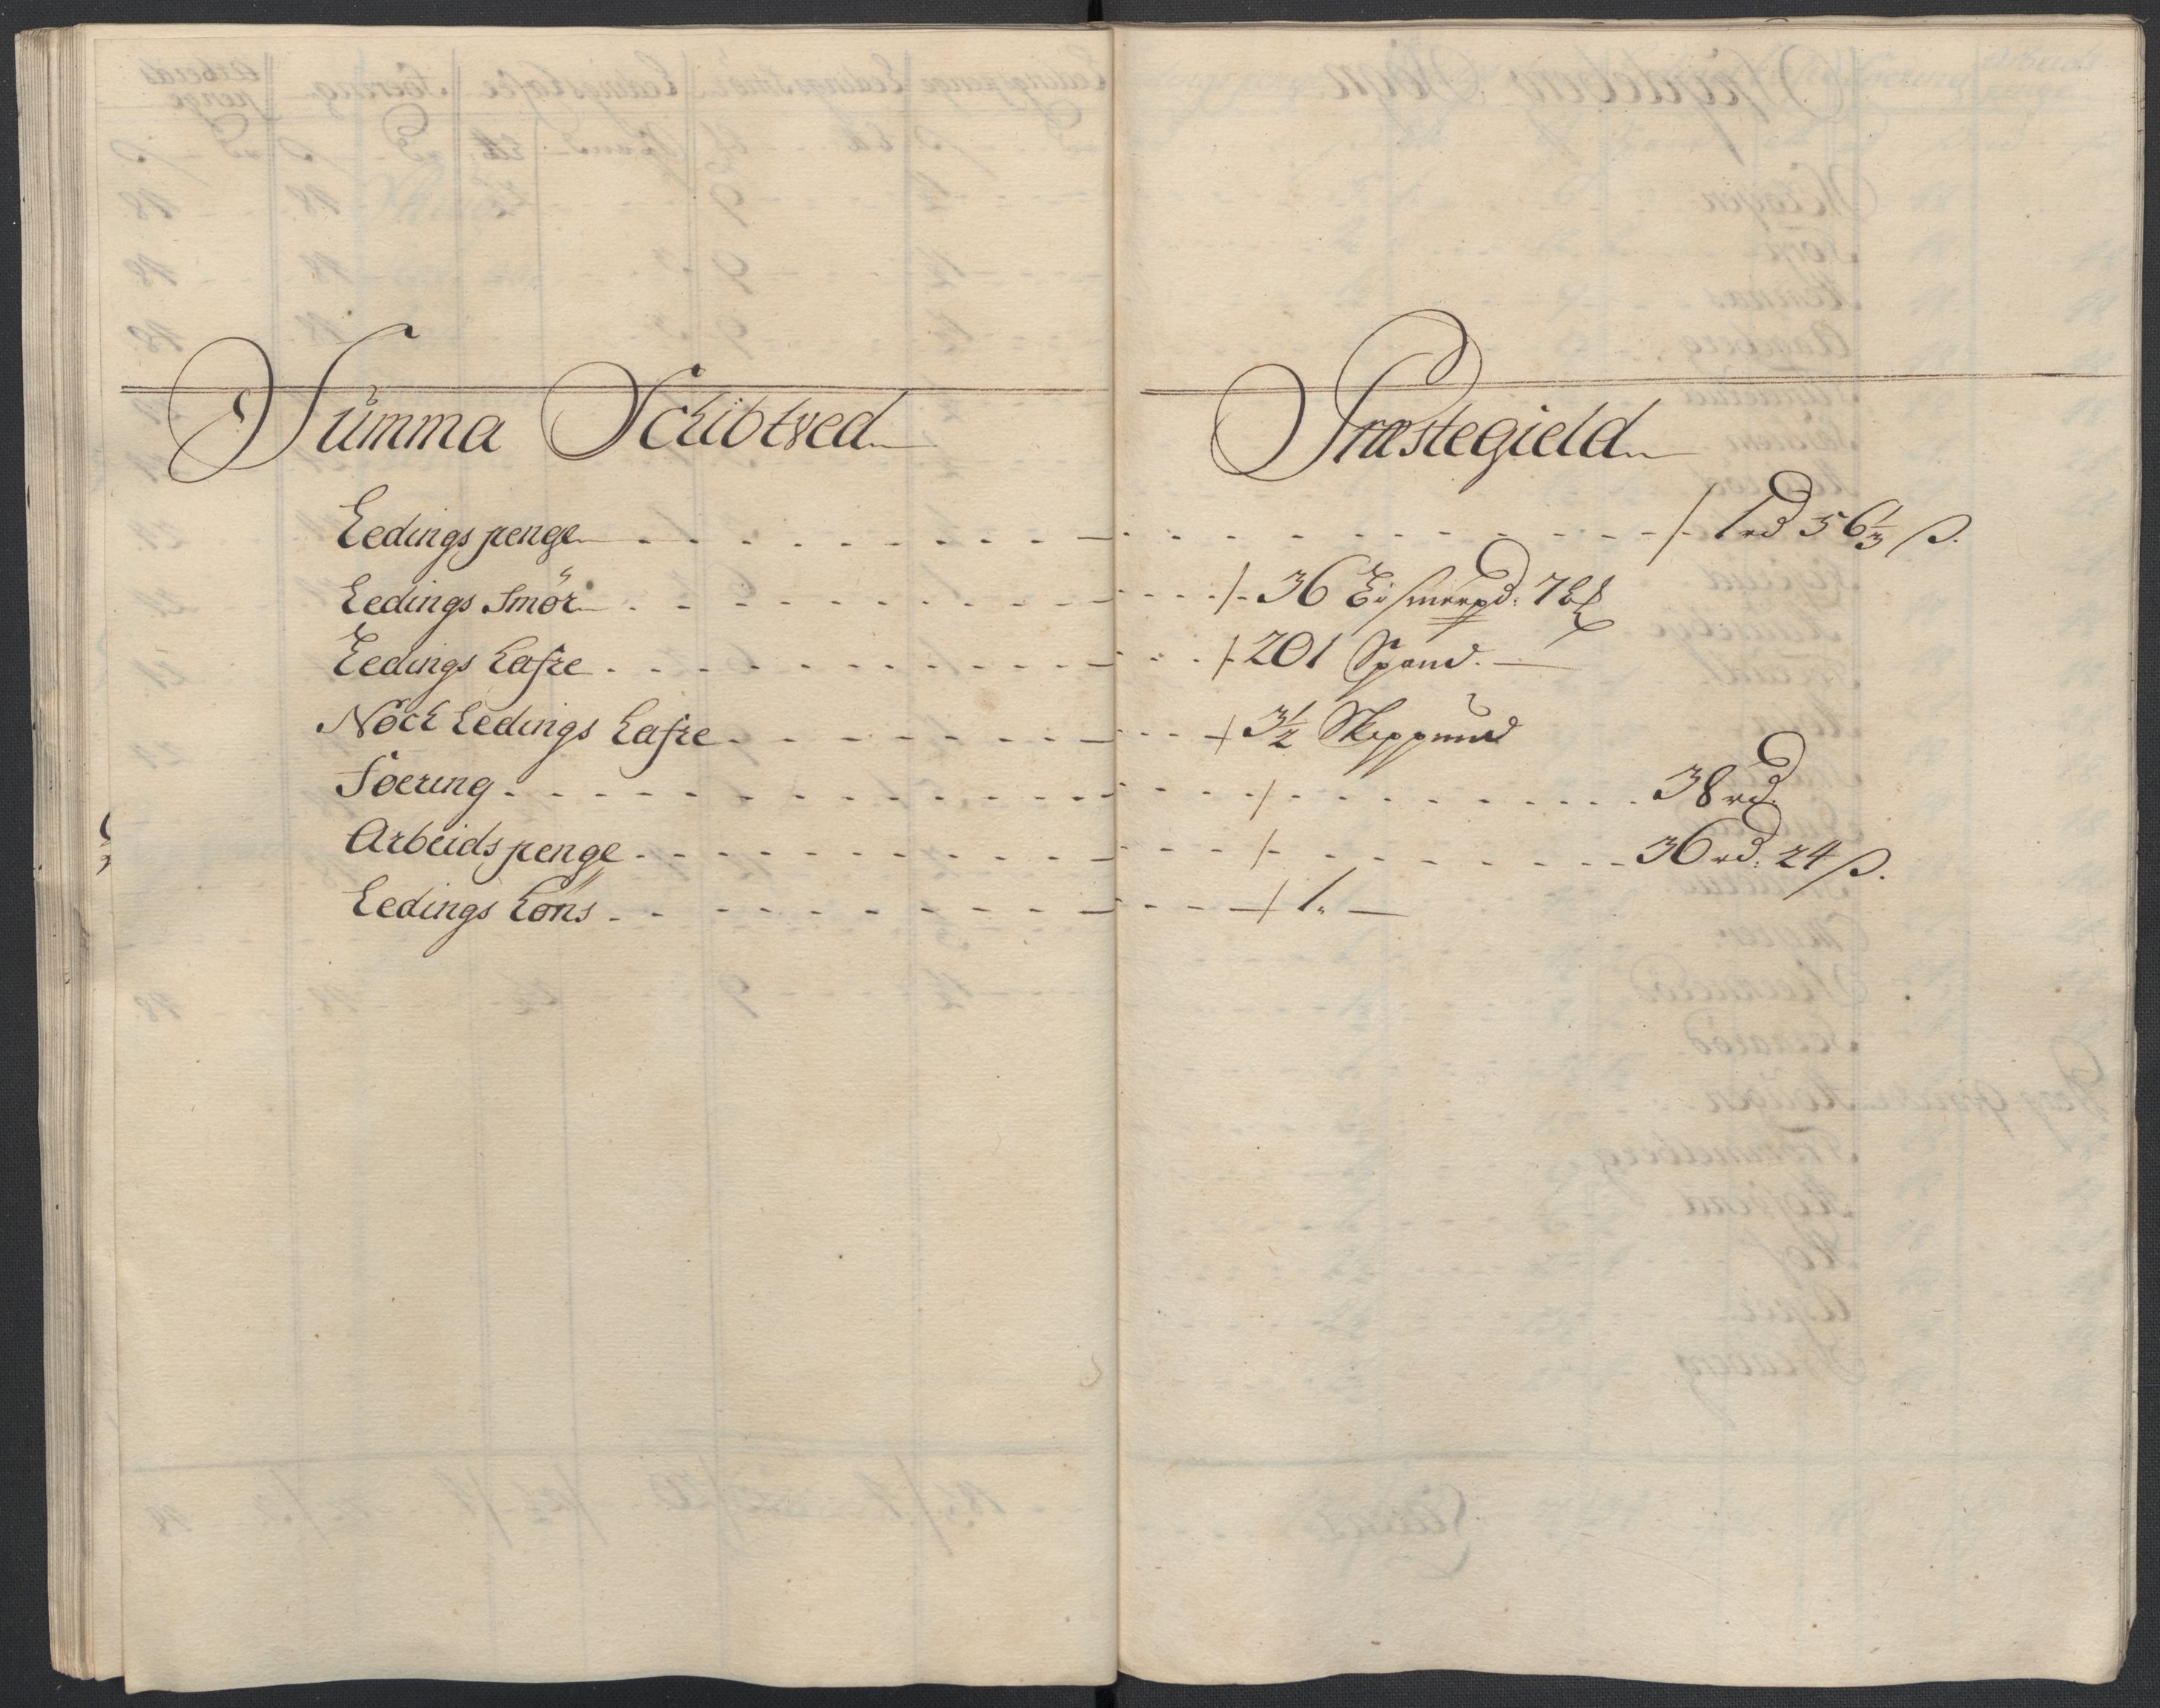 Summa Schibtved Præstegield
Ledings penge - - - /- 1 rd 56 1/3 ß.
Ledings Smör - - - /- 36 Bismerpd: 7 lb
Ledings hafre - - - /- 201 Spand.
Noch Ledings hafre - - - /- 3 1/2 Skeppund
Foering - - - /- - - 38 rd.
Arbeids penge - - - /- - - 36 rd. 24 ß.
Ledings höns - - - /- 1.